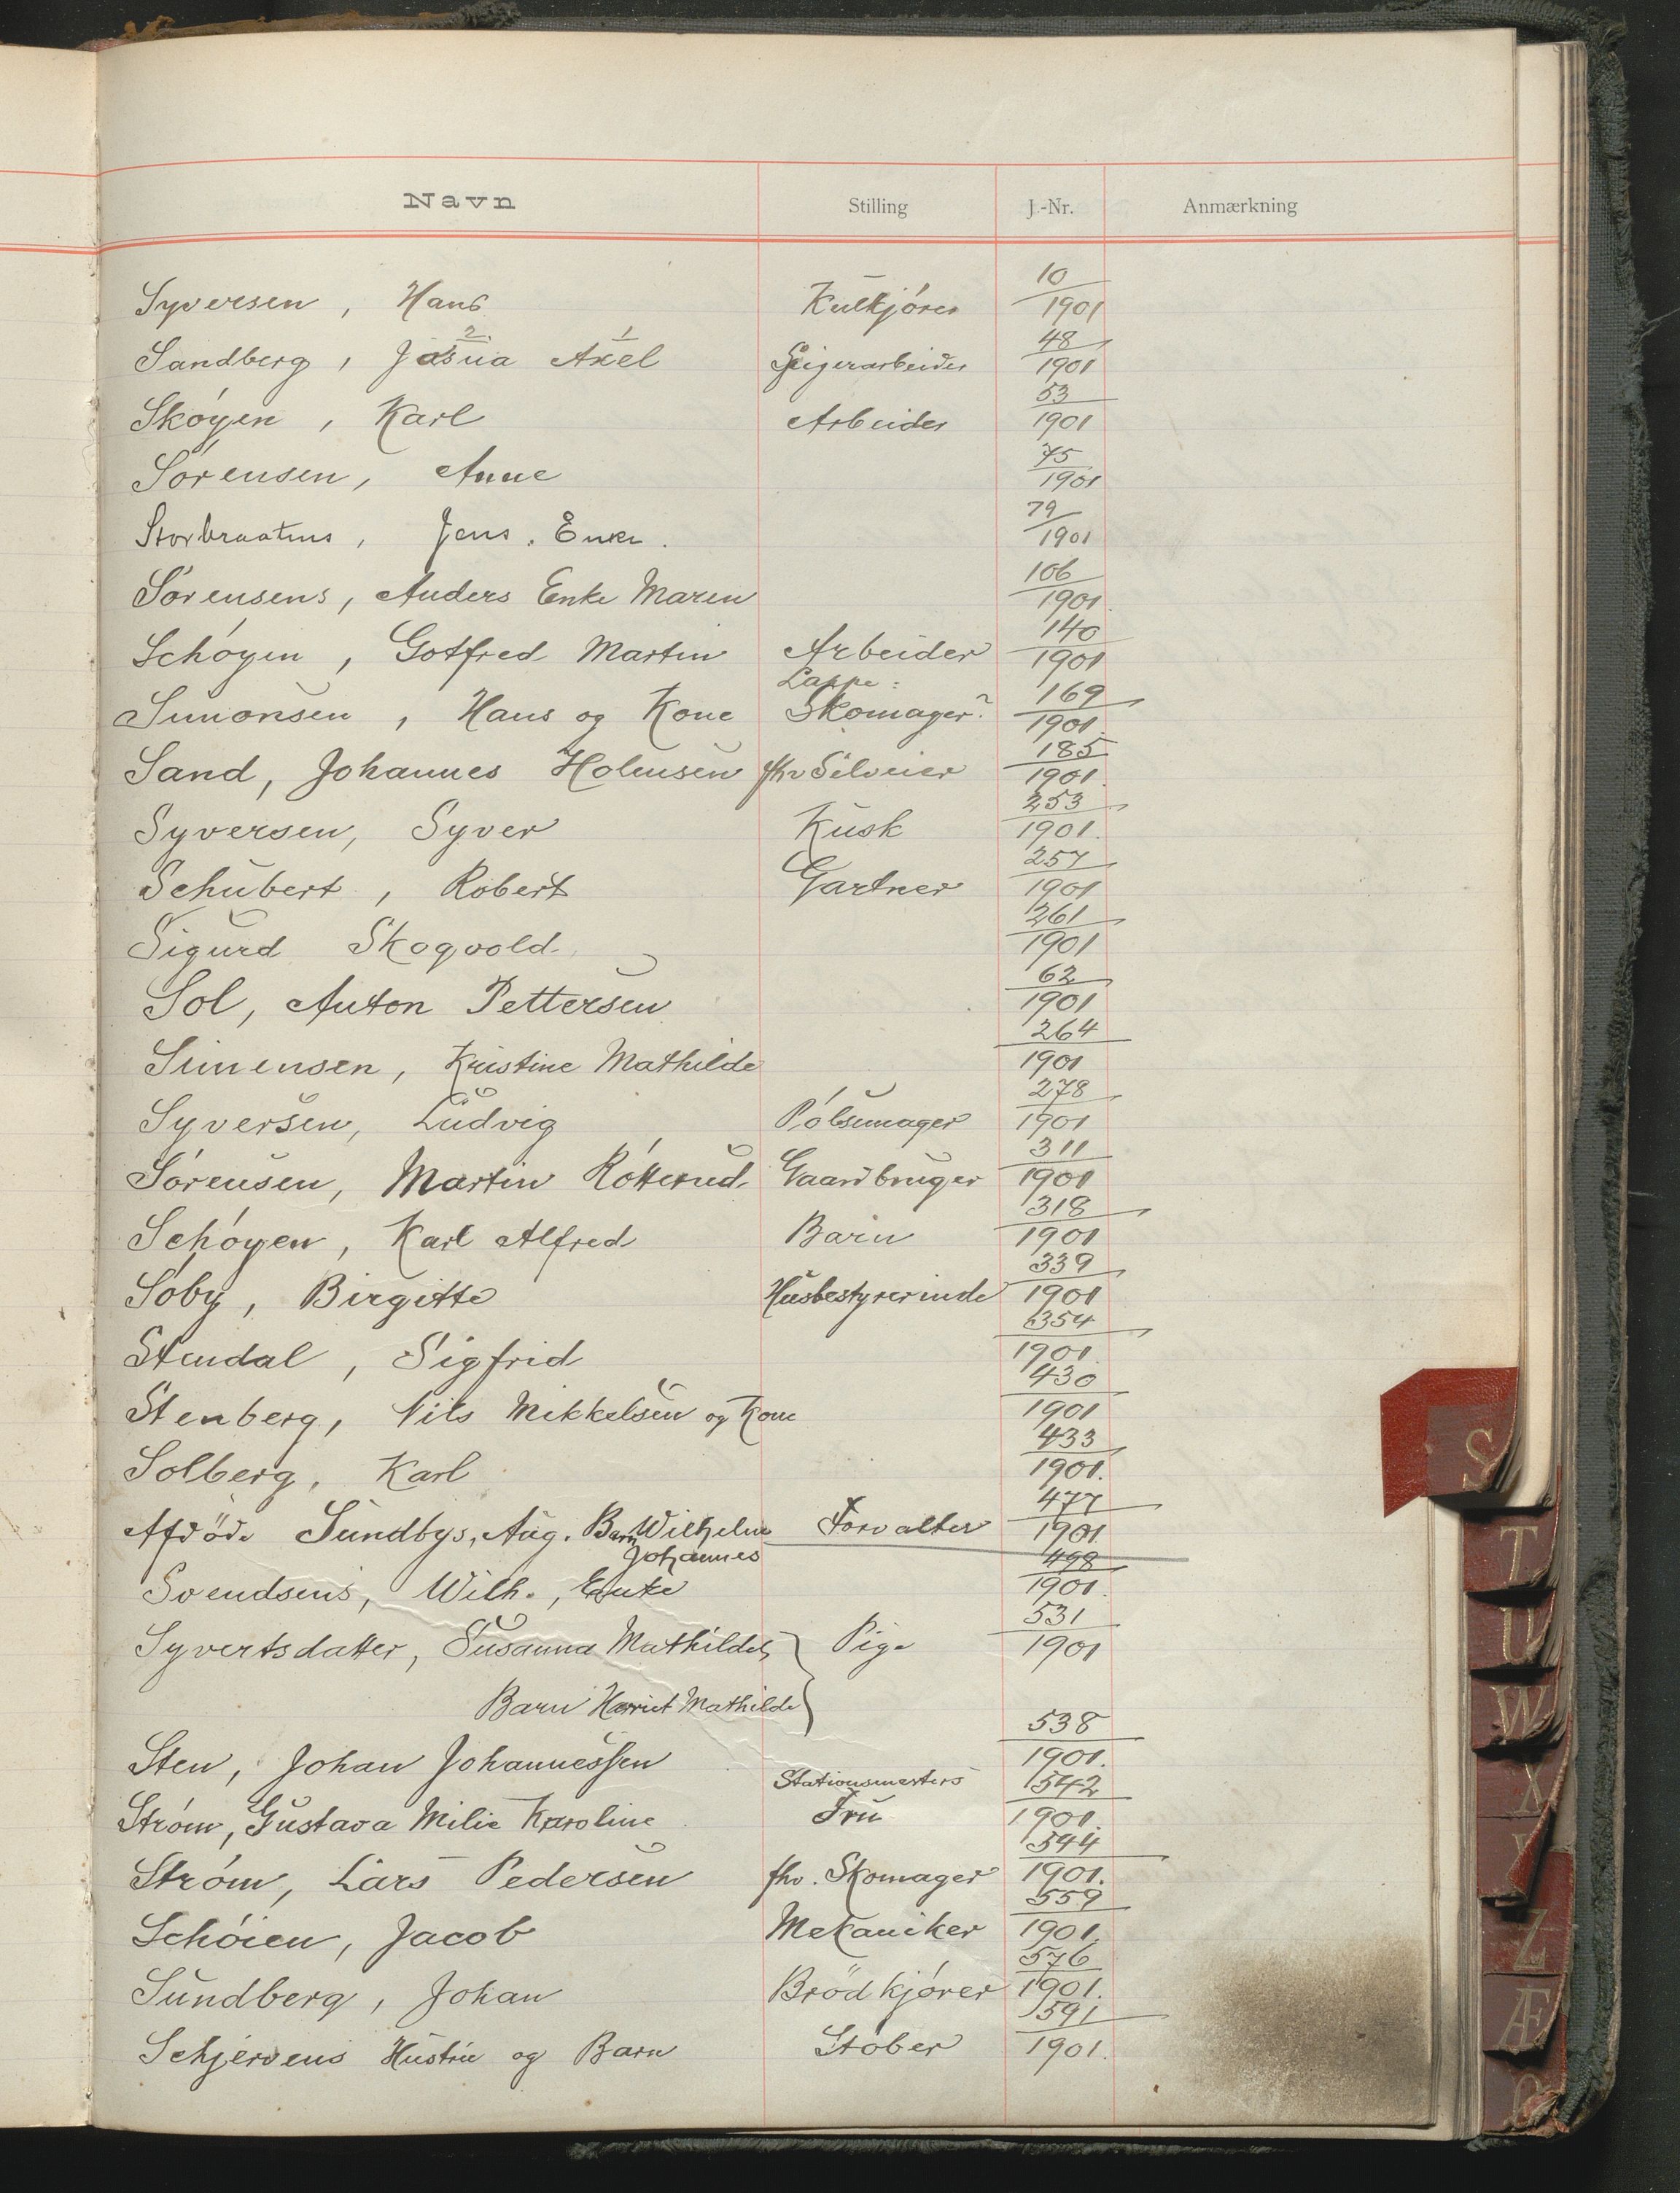 Navn Stilling J.-Nr. Anmærkning
Syversen, Hans Kulkjører 10/1901
Sandberg, Josua 2 Axel 1 Spigerarbeider 48/1901
Skøyen, Karl Arbeider 53/1901
Sørensen, Anne 75/1901
Storbraatens, Jens. Enke. 79/1901
Sørensens, Anders Enke Maren 106/1901.
Schøyen, Gotfred Martin Arbeider 140/1901
Lappe:
Simonsen, Hans og Kone Skomager? 169/1901.
Sand, Johannes Holmsen fhv Selveier 185/1901.
Syversen, Syver Kusk 253/1901.
Schubert, Robert Gartner 257/1901
Sigurd Skogvold 261/1901
Sol, Anton Pettersen 62/1901
Simensen, Kristine Mathilde 264/1901
Syversen, Ludvig Pølsemager 278/1901
Sørensen, Martin Røtterud Gaardbruger 311/1901
Schøyen, Karl Alfred Barn 318/1901
Søby, Birgitte Husbestyrerinde 339/1901
Stendal, Sigfrid 354/1901.
Stenberg, Nils Mikkelsen og Kone 430/1901
Solberg, Karl 433/1901.
Afdöde Sundbys, Aug. Barn Wilhelm Forvalter 477/1901
Johannes
Svendsens, Wilh., Enke 498/1901.
Syvertsdatter, Susanna Mathildes Pige 531/1901
Barn Harriet Mathilde
Sten, Johan Johannessen 538/1901.
Stationsmesters
Strøm, Gustava Milie Karoline Fru 542/1901.
Strøm, Lars Pedersen fhv. Skomager 544/1901.
Schøien, Jacob Mekaniker 559/1901.
Sundberg, Johan Brödkjører 576/1901.
Schjervens Hustru og Barn Støber 591/1901.
S
T
U
W
X
Y
Z
Æ
Ø